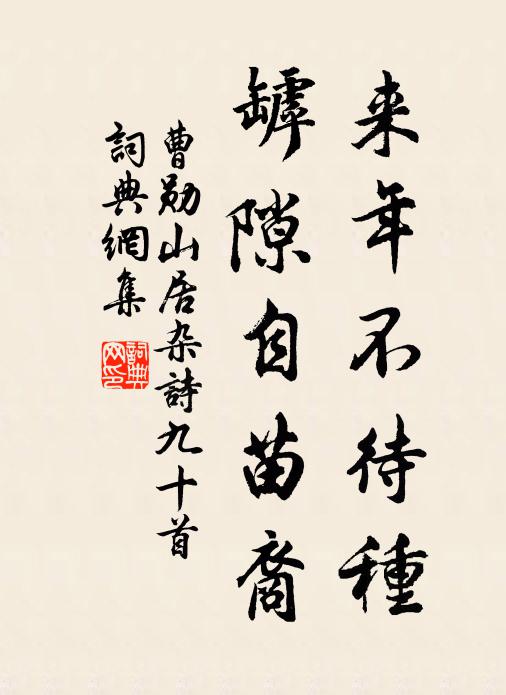 来年不待種
罅隙自苗裔
曹勛山居杂詩九十首
詞典網集
詞典網印